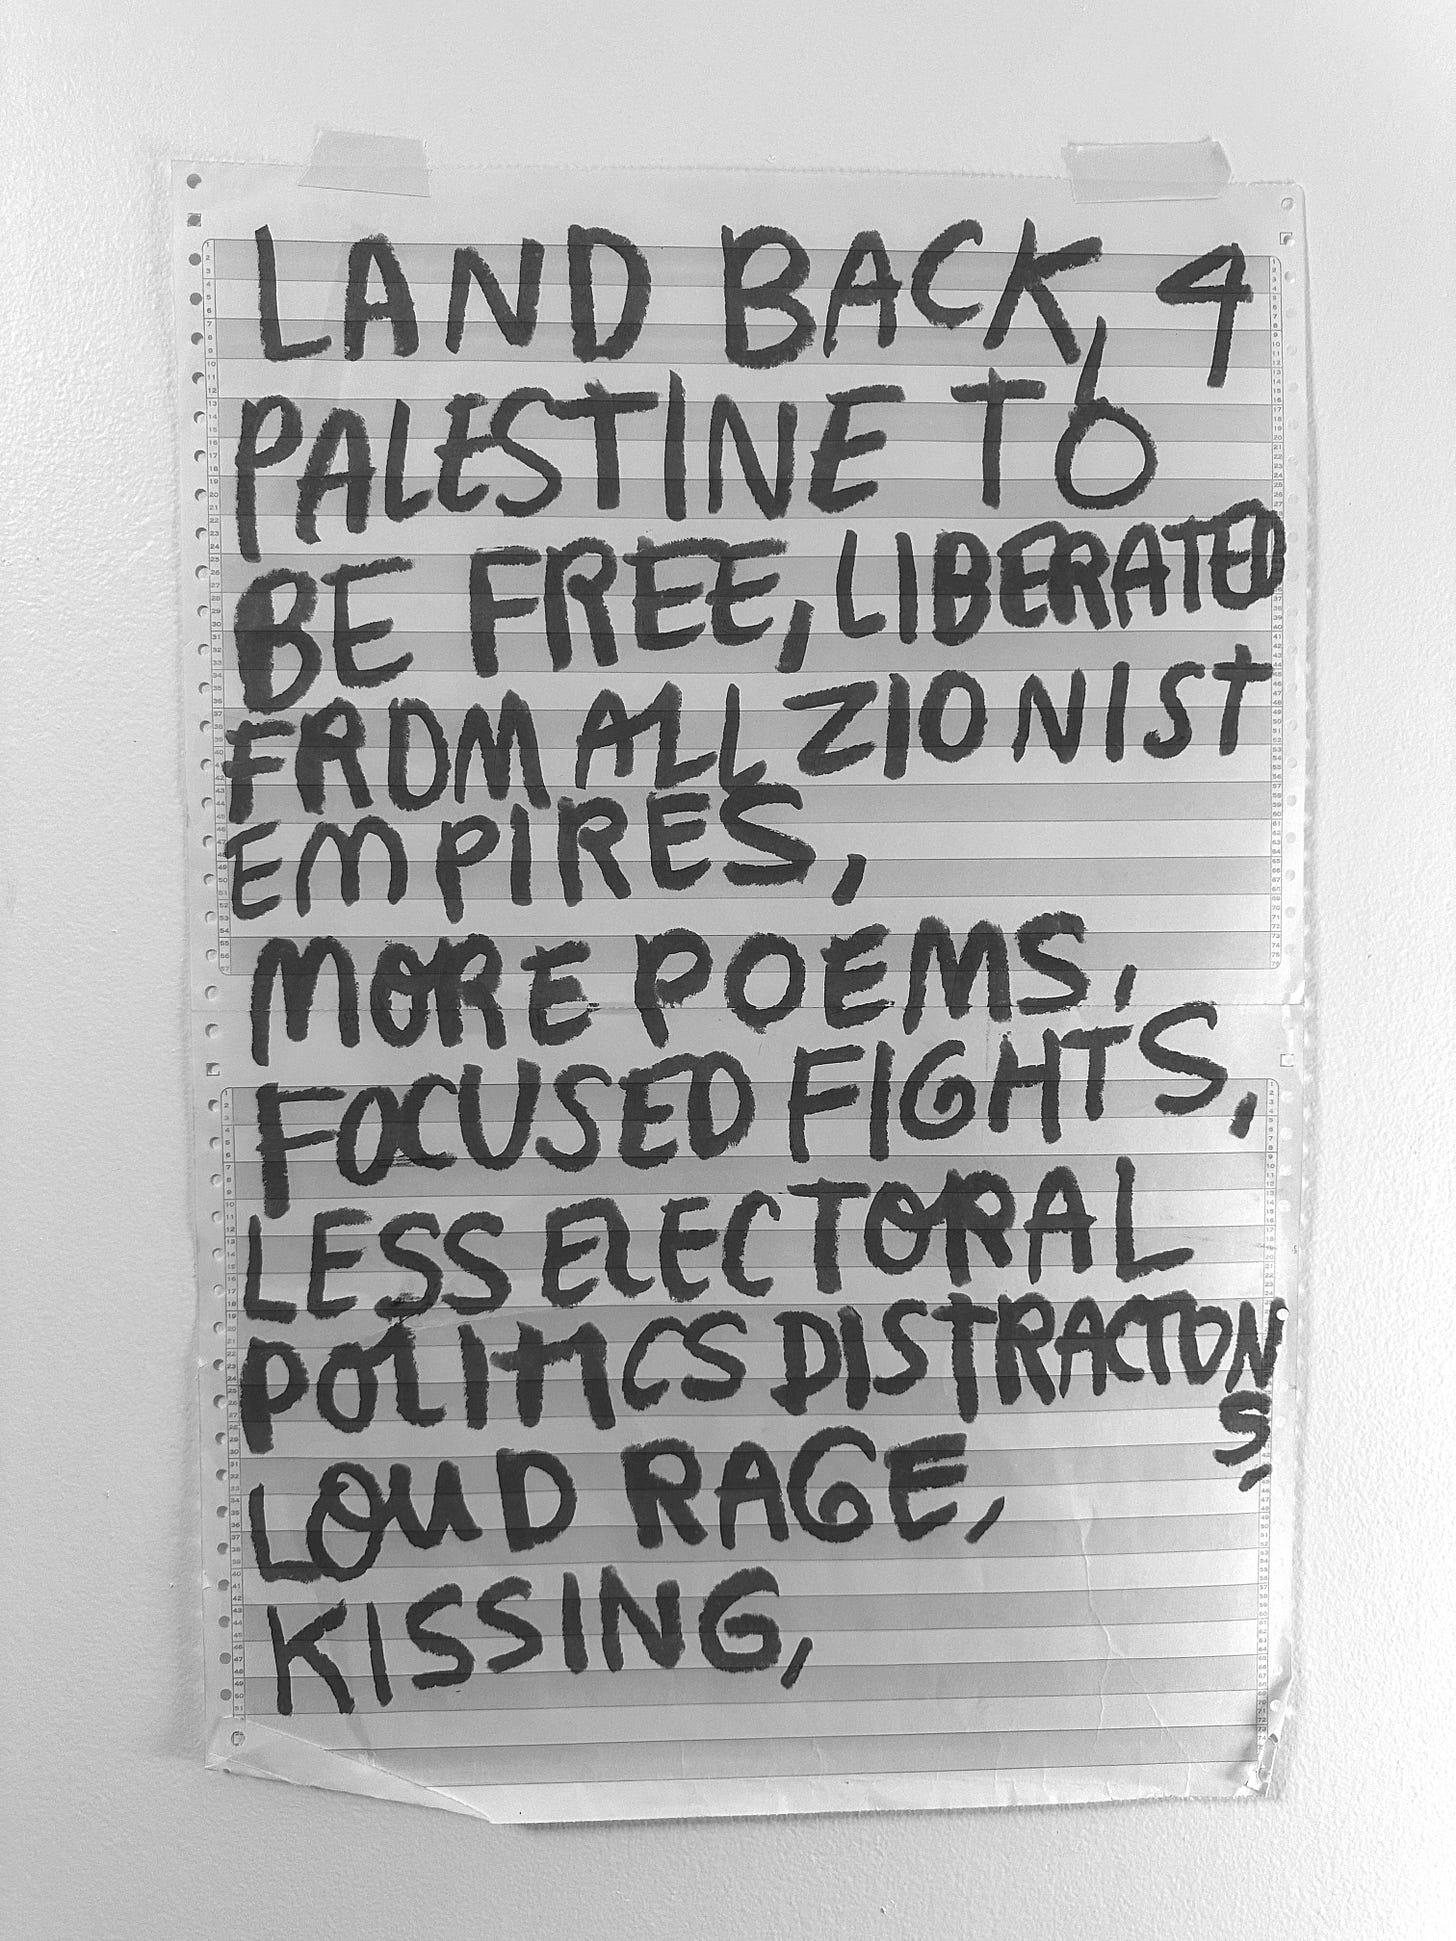 LAND BACK, 4
PALESTINE TO
BE FREE, LIBERATED
FROM ALL ZIONIST
EMPIRES,
MORE POEMS,
FOCUSED FIGHTS,
LESS ELECTORAL
POLITICS DISTRACTION
S,
LOUD RAGE,
KISSING,